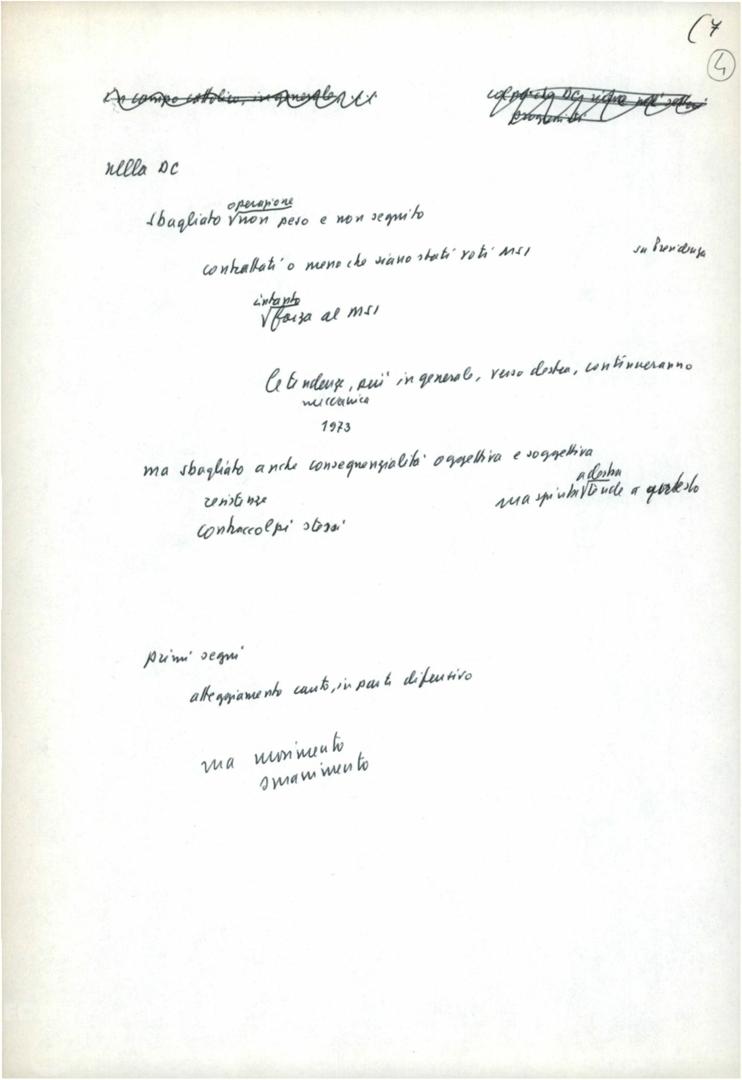 (7
4
in campo cattolico, in generale
nella DC
operazione
sbagliato √non peso e non seguito
contrattati o meno che siano stati voti MSI
su Presidenza
intanto
√forza al MSI
le tendenze, più in generale, verso destra, continueranno
meccanica
1973
ma sbagliato anche consequenzialità oggettiva e soggettiva
a destra
resistenze
ma spinta √tende a questo
contraccolpi stessi
primi segni
atteggiamento cauto, in parte difensivo
ma movimento
smarrimento